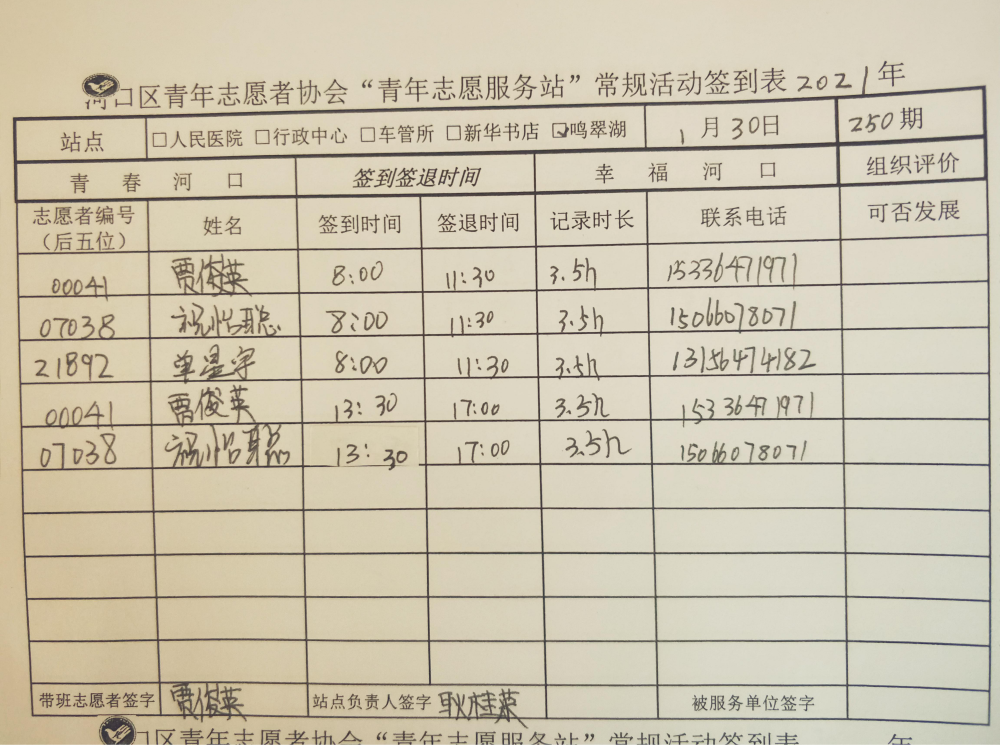 河口区青年志愿者协会“青年志愿服务站”常规活动签到表 2021年
站点 □人民医院 □行政中心 □车管所 □新华书店 ☑鸣翠湖 1月30日 250期
青春河口 签到签退时间 幸福河口 组织评价
志愿者编号（后五位） 姓名 签到时间 签退时间 记录时长 联系电话 可否发展
00041 贾俊英 8:00 11:30 3.5h 15336471971
07038 祝怡聪 8:00 11:30 3.5h 15066078071
21892 单星宇 8:00 11:30 3.5h 13156474182
00041 贾俊英 13:30 17:00 3.5h 15336471971
07038 祝怡聪 13:30 17:00 3.5h 15066078071
带班志愿者签字 贾俊英 站点负责人签字 耿桂荣 被服务单位签字
口区青年志愿者协会“青年志愿服务站”常规活动签到表 年